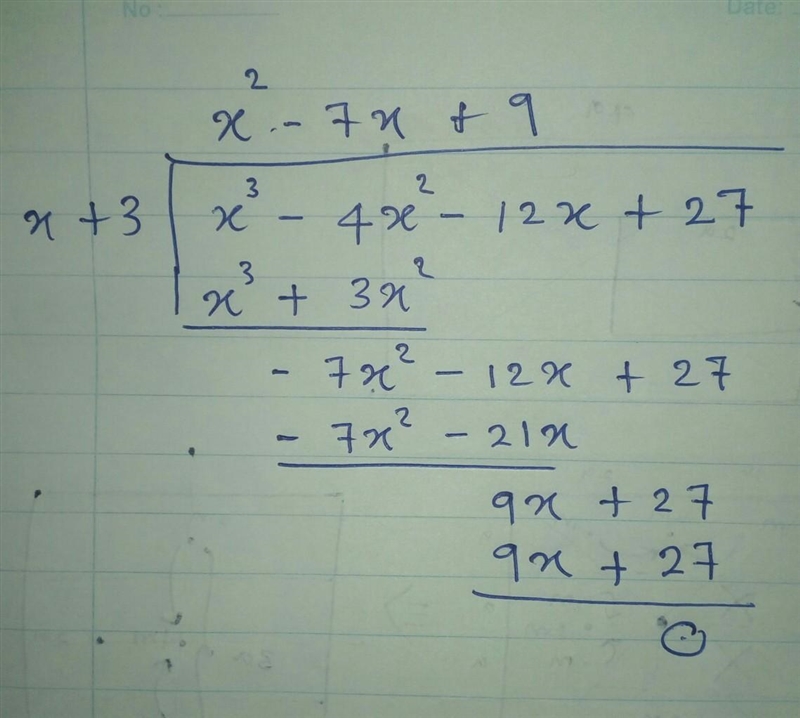 No :
Date:
x² - 7x + 9
x + 3 x³ - 4x² - 12x + 27
x³ + 3x²
- 7x² - 12x + 27
- 7x² - 21x
9x + 27
9x + 27
0